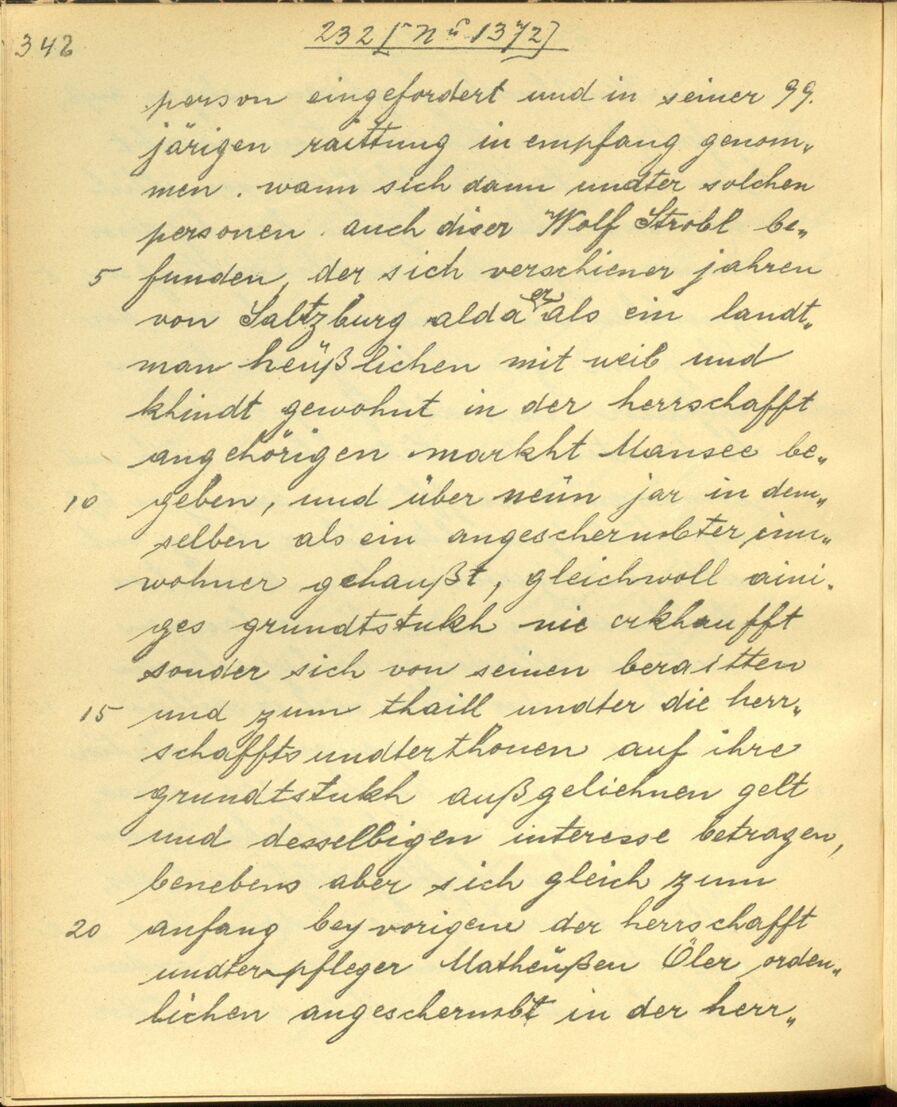 348
232 [Nr. 1372]
person eingefordert und in seiner 99.
järigen raittung in empfang genom„
men. wann sich dann undter solchen
personen auch diser Wolf Strobl be„
5 funden, der sich verschiener jahren
von Saltzburg aldaer als ein landt„
man heüßlichen mit weib und
khindt gewohnt in der herrschafft
angehörigen markht Mansee be„
10 geben, und über neün jar in dem„
selben als ein angeschermbter inn„
wohner gehaußt, gleichwoll aini.
ges grundtstukh nie erkhaufft
sonder sich von seinen beraitten
15 und zum thaill undter die herr„
schaffts undterthonen auf ihre
grundtstukh außgelichnen gelt
und desselbigen interesse betragen,
benebens aber sich gleich zum
20 anfang bey vorigem der herrschafft
undterpfleger Matheüßen Öler orden„
lichen angeschermbt in der herr„